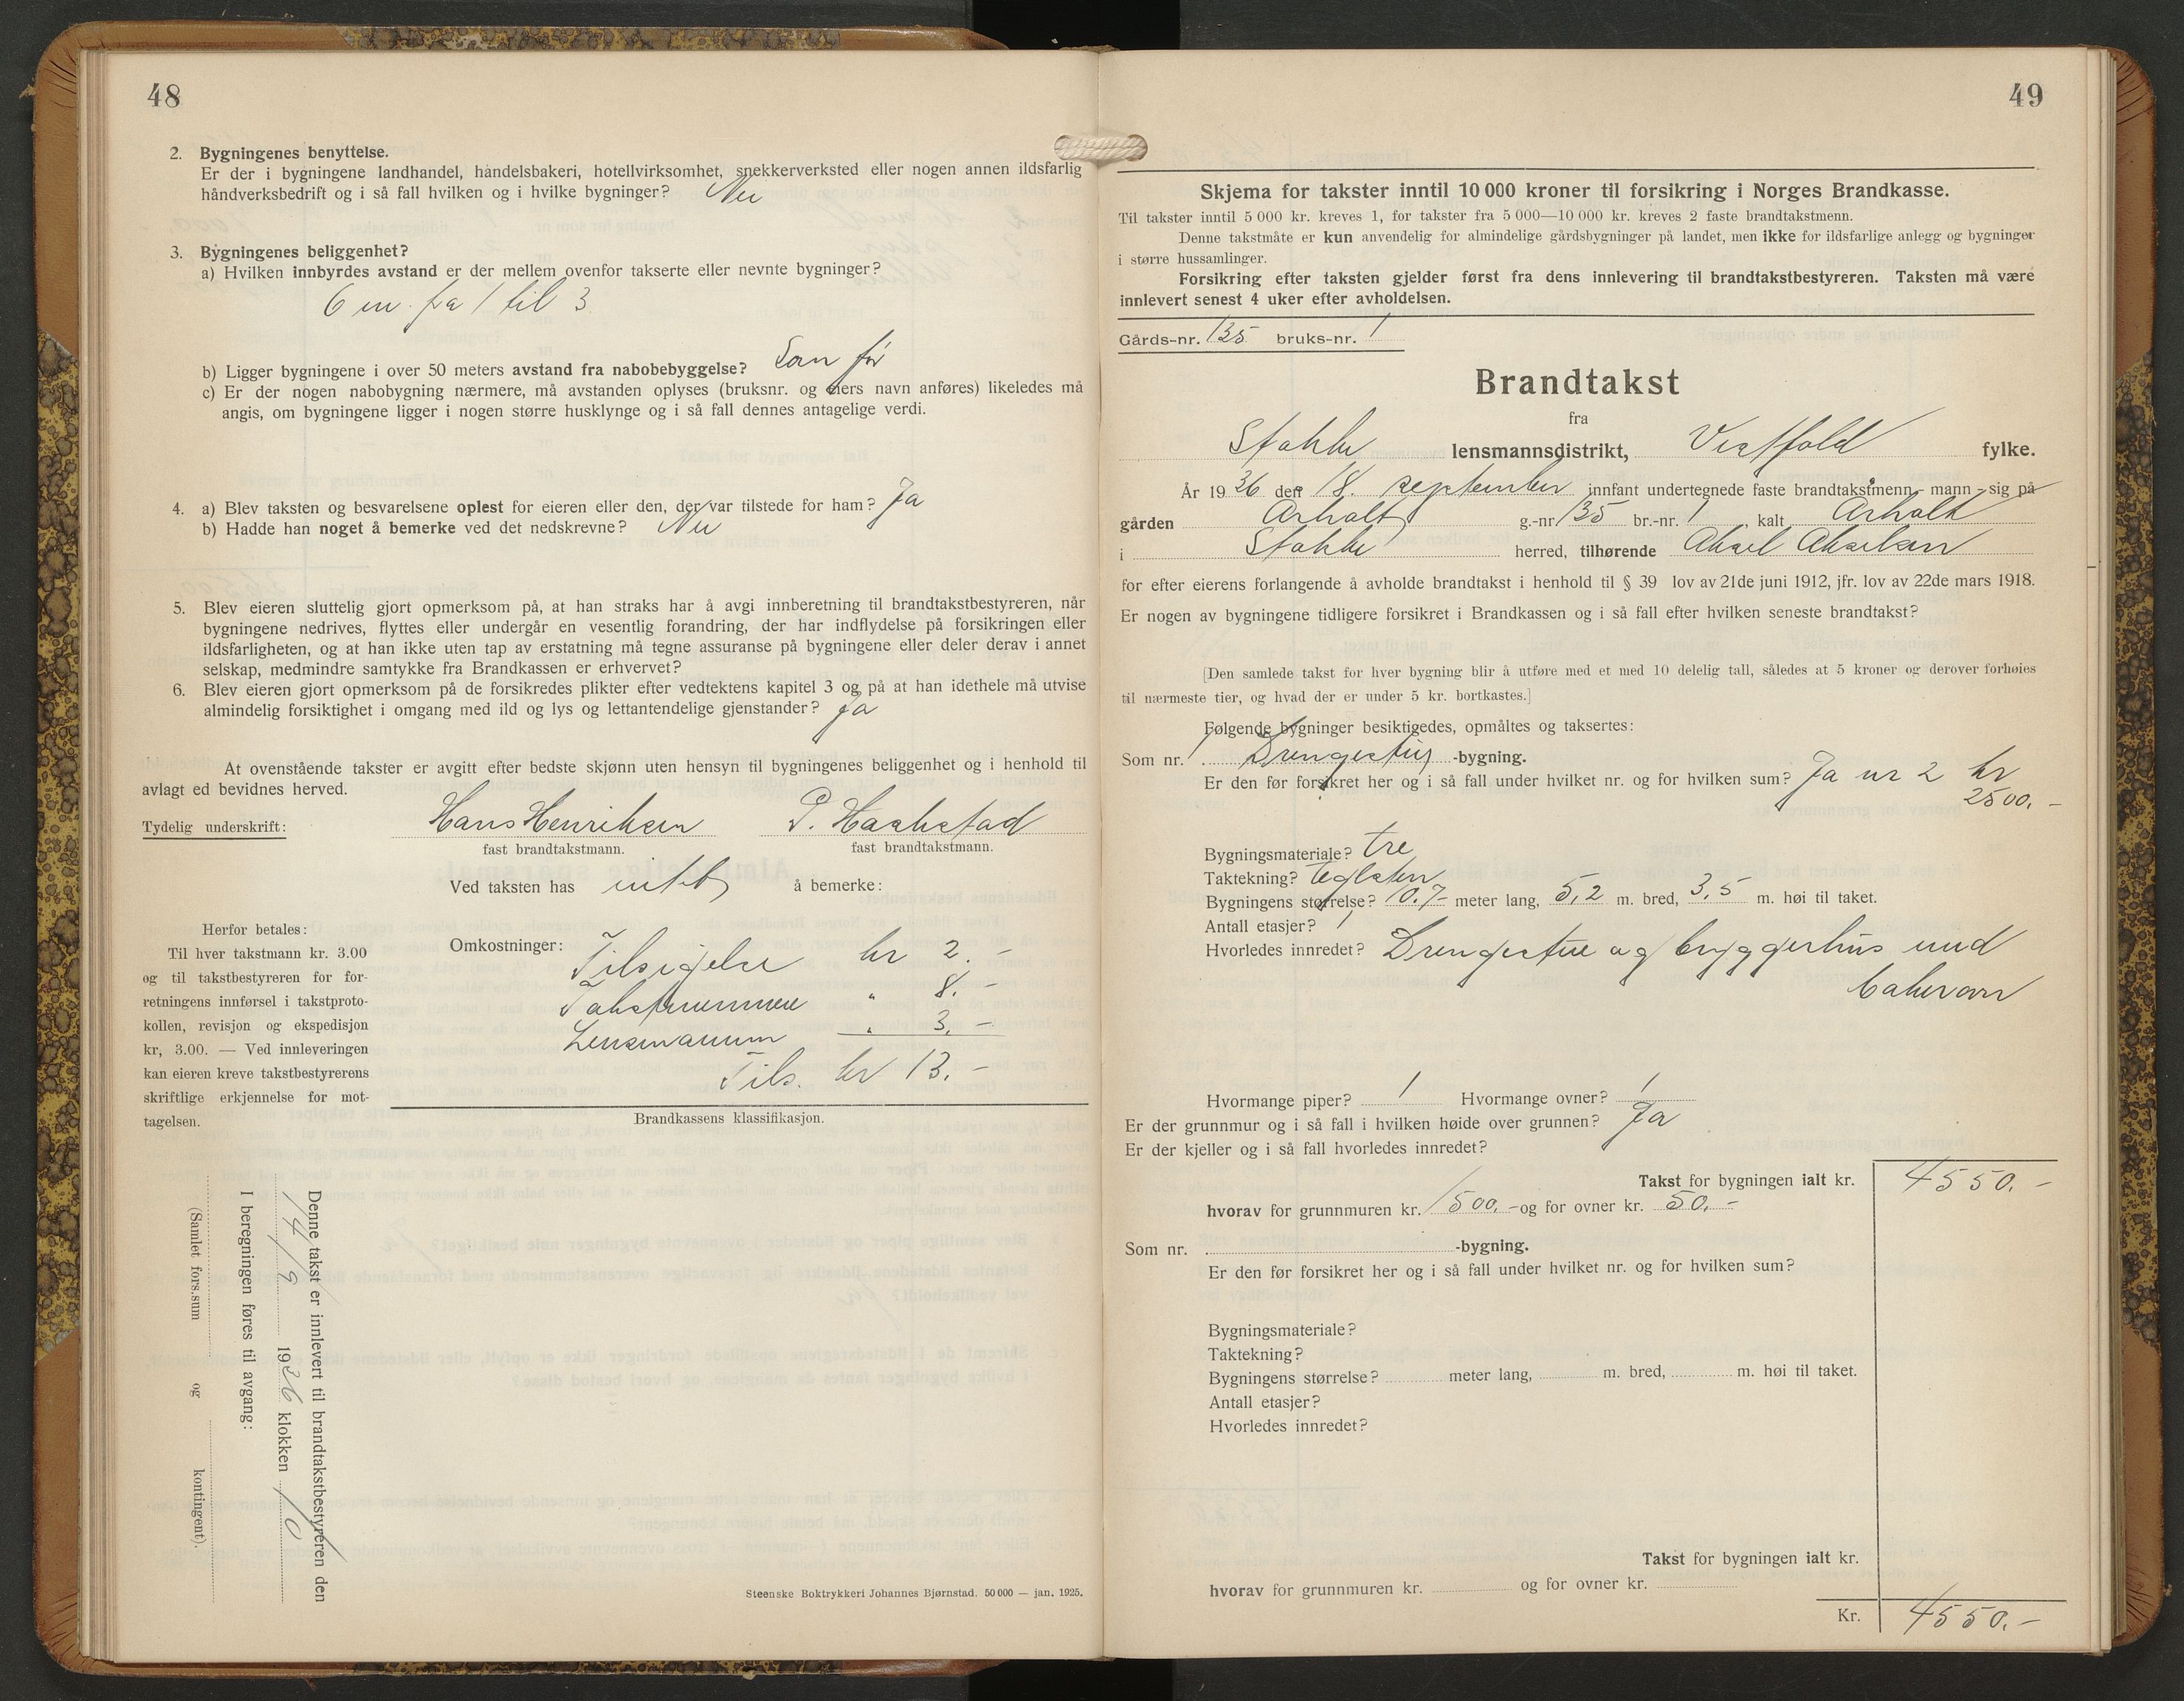 48
2. Bygningenes benyttelse.
Er der i bygningene landhandel, handelsbakeri, hotellvirksomhet, snekkerverksted eller nogen annen ildsfarlig
håndverksbedrift og i så fall hvilken og i hvilke bygninger? Nei
3. Bygningenes beliggenhet?
a) Hvilken innbyrdes avstand er der mellem ovenfor takserte eller nevnte bygninger?
6 m. fra 1 til 3
b) Ligger bygningene i over 50 meters avstand fra nabobebyggelse? Som før
c) Er der nogen nabobygning nærmere, må avstanden oplyses (bruksnr. og eiers navn anføres) likeledes må
angis, om bygningene ligger i nogen større husklynge og i så fall dennes antagelige verdi.
4. a) Blev taksten og besvarelsene oplest for eieren eller den, der var tilstede for ham? Ja
b) Hadde han noget å bemerke ved det nedskrevne? Nei
5. Blev eieren sluttelig gjort opmerksom på, at han straks har å avgi innberetning til brandtakstbestyreren, når
bygningene nedrives, flyttes eller undergår en vesentlig forandring, der har indflydelse på forsikringen eller
ildsfarligheten, og at han ikke uten tap av erstatning må tegne assuranse på bygningene eller deler derav i annet
selskap, medmindre samtykke fra Brandkassen er erhvervet?
6. Blev eieren gjort opmerksom på de forsikredes plikter efter vedtektens kapitel 3 og på at han idethele må utvise
almindelig forsiktighet i omgang med ild og lys og lettantendelige gjenstander? Ja
At ovenstående takster er avgitt efter bedste skjønn uten hensyn til bygningenes beliggenhet og i henhold til
avlagt ed bevidnes herved.
Tydelig underskrift: Hans Henriksen P. Haakestad
fast brandtakstmann. fast brandtakstmann.
Ved taksten has intet å bemerke:
Herfor betales:
Til hver takstmann kr. 3.00
og til takstbestyreren for for-
retningens innførsel i takstproto-
kollen, revisjon og ekspedisjon
kr, 3.00. — Ved innleveringen
kan eieren kreve takstbestyrerens
skriftlige erkjennelse for mot-
tagelsen.
Omkostninger:
Tilsigelse kr 2.-
Takstmennene " 8.-
Lensmannen " 3.-
Tils. kr 13.-
Brandkassens klassifikasjon.
Denne takst er innlevert til brandtakstbestyreren den
14/9 1936 klokken 10
I beregningen føres til avgang:
(Samlet fors.sum og kontingent).
Steenske Boktrykkeri Johannes Bjørnstad. 50 000 — jan. 1925.
49
Skjema for takster inntil 10 000 kroner til forsikring i Norges Brandkasse.
Til takster inntil 5 000 kr. kreves 1, for takster fra 5 000—10 000 kr. kreves 2 faste brandtakstmenn.
Denne takstmåte er kun anvendelig for almindelige gårdsbygninger på landet, men ikke for ildsfarlige anlegg og bygninger
i større hussamlinger.
Forsikring efter taksten gjelder først fra dens innlevering til brandtakstbestyreren. Taksten må være
innlevert senest 4 uker efter avholdelsen.
Gårds-nr. 135 bruks-nr. 1
Brandtakst
fra
Stokke lensmannsdistrikt, Vestfold fylke.
År 1936 den 18. september innfant undertegnede faste brandtakstmenn - mann - sig på
gården Arholt g.-nr. 135 br.-nr. 1 kalt Arholt
i Stokke herred, tilhørende Aksel Akselsen
for efter eierens forlangende å avholde brandtakst i henhold til § 39 lov av 21de juni 1912, jfr. lov av 22de mars 1918.
Er nogen av bygningene tidligere forsikret i Brandkassen og i så fall efter hvilken seneste brandtakst?
[Den samlede takst for hver bygning blir å utføre med et med 10 delelig tall, således at 5 kroner og derover forhøies
til nærmeste tier, og hvad der er under 5 kr. bortkastes.]
Følgende bygninger besiktigedes, opmåltes og taksertes:
Som nr. 1 Drengestue -bygning.
Er den før forsikret her og i så fall under hvilket nr. og for hvilken sum? Ja nr 2 kr
2500.-
Bygningsmateriale? tre
Taktekning? teglsten
Bygningens størrelse? 10.7 meter lang, 5,2 m. bred, 3,5 m. høi til taket.
Antall etasjer? 1
Hvorledes innredet? Drengestue og bryggerhus med
bakerovn
Hvormange piper? 1 Hvormange ovner? 1
Er der grunnmur og i så fall i hvilken høide over grunnen? Ja
Er der kjeller og i så fall hvorledes innredet?
Takst for bygningen ialt kr. 4550.-
hvorav for grunnmuren kr. 1500.- og for ovner kr. 50.-
Som nr. -bygning.
Er den før forsikret her og i så fall under hvilket nr. og for hvilken sum?
Bygningsmateriale?
Taktekning?
Bygningens størrelse? meter lang, m. bred, m. høi til taket.
Antall etasjer?
Hvorledes innredet?
Takst for bygningen ialt kr.
hvorav for grunnmuren kr. og for ovner kr.
Kr. 4550.-